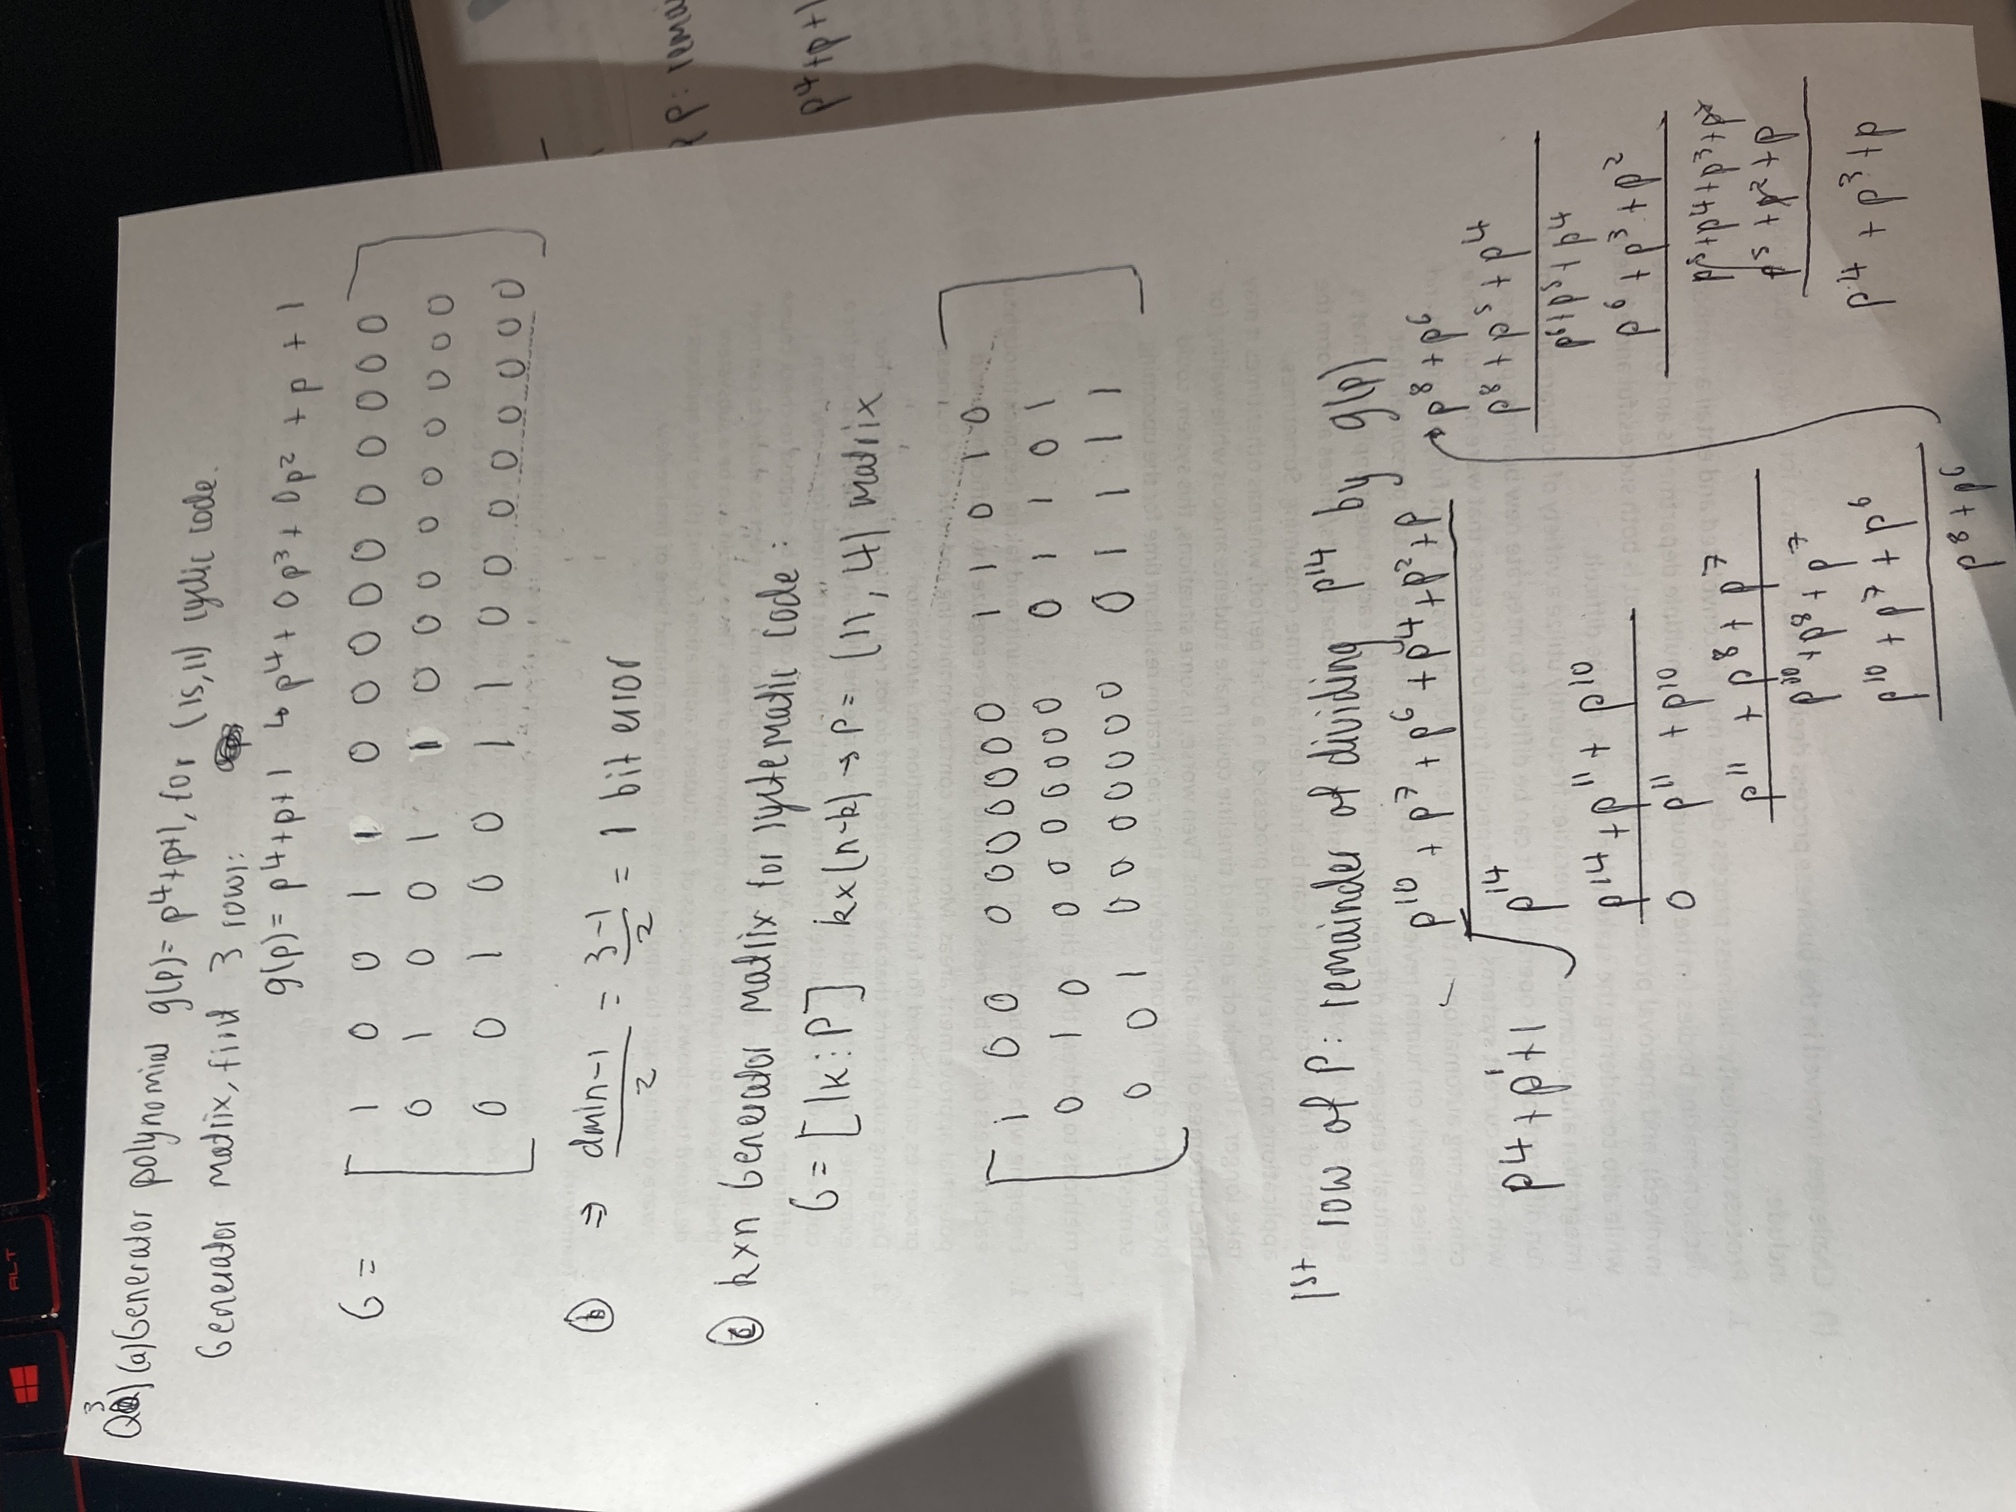 Q3) (a) Generator polynomial g(p) = p⁴+p+1, for (15,11) cyclic code.
Generator matrix, first 3 rows:
g(p) = p⁴+p+1 ↳ p⁴ + 0p³ + 0p² + p + 1
G =
1 0 0 1 1 0 0 0 0 0 0 0 0 0 0
0 1 0 0 1 1 0 0 0 0 0 0 0 0 0
0 0 1 0 0 1 1 0 0 0 0 0 0 0 0
(b) ⇒ dmin-1 / 2 = 3-1 / 2 = 1 bit error
(c) k×n Generator matrix for systematic code:
G = [Ik : P] k×(n-k) → P = (11, 4) matrix
1 0 0 0 0 0 0 0 0 0 0 1 1 0 1 0
0 1 0 0 0 0 0 0 0 0 0 1 1 0 1
0 0 1 0 0 0 0 0 0 0 0 1 1 1 1
1st row of P: remainder of dividing p¹⁴ by g(p)
p¹⁰ + p⁷ + p⁶ + p⁴ + p² + p
p⁴ + p¹ + 1
p¹⁴
p¹⁴ + p¹¹ + p¹⁰
0 p¹¹ + p¹⁰
p¹¹ + p⁸ + p⁷
p¹⁰ + p⁸ + p⁷
p¹⁰ + p⁷ + p⁶
p⁸ + p⁶
p⁸ + p⁶
p⁸ + p⁵ + p⁴
p⁶ + p⁵ + p⁴
p⁶ + p³ + p²
p⁵ + p⁴ + p³ + p²
p⁵ + p² + p
p⁴ + p³ + p
P: remai
p⁴+p+1
ALT